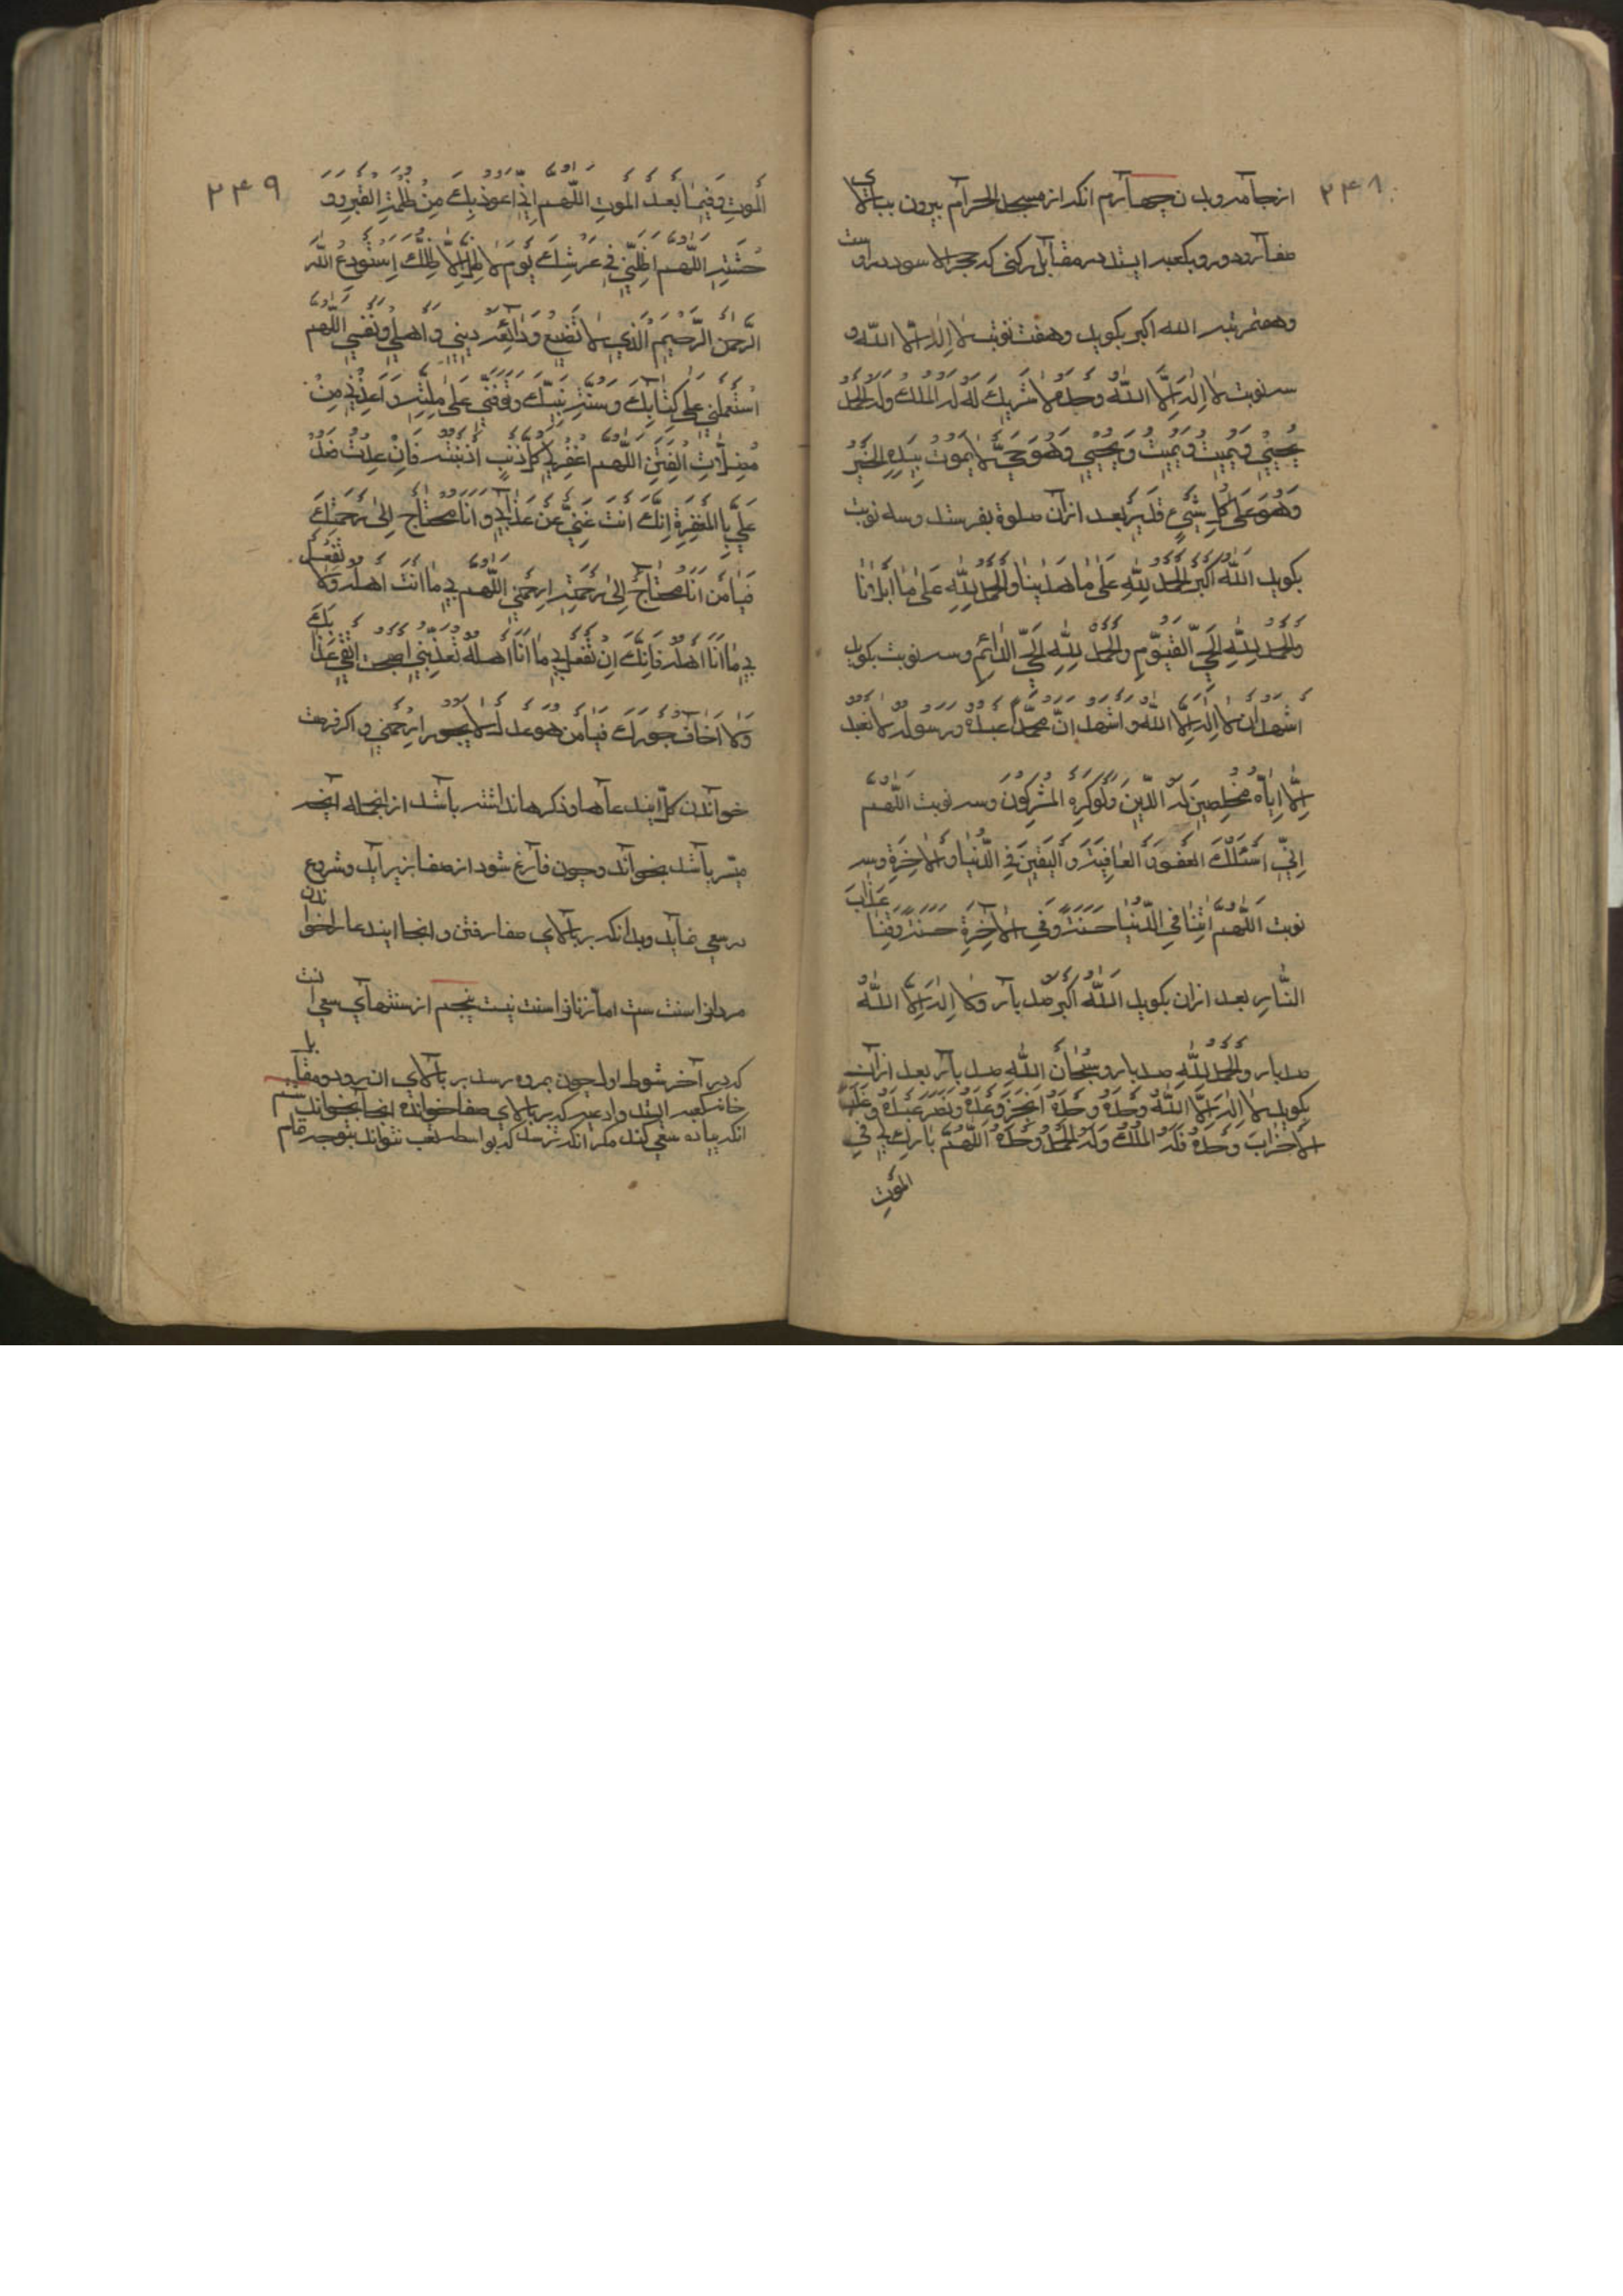 ۲۴۸
از بجا آمدن چهارم انکه از مسجد الحرام بیرون بیاید ببالای
صفا رود و رو بکعبه ایستد در مقابل رکنی که حجر الاسود در اوست
و هفت مرتبه الله اکبر بکوید و هفت نوبت لا اله الا الله و
سه نوبت لا اِلٰهَ اِلَّا اللّٰهُ وَحدَهُ لا شَریكَ لَهُ لَهُ المُلكُ وَلَهُ الحَمدُ
یُحیی وَیُمیتُ وَیُمیتُ وَیُحیی وَهُوَ حَیٌّ لا یَموتُ بِیَدِهِ الخَیرُ
وَهُوَ عَلی کُلِّ شَیءٍ قَدیر بعد ازان صلوة بفرستد و سه نوبت
بکوید اَللّٰهُ اَکبَرُ اَلحَمدُ لِلّٰهِ عَلیٰ ما هَدٰینا وَالحَمدُ لِلّٰهِ عَلیٰ ما اَبلانا
وَالحَمدُ لِلّٰهِ الحَیِّ القَیّومِ وَالحَمدُ لِلّٰهِ الحَیِّ الدّائِمِ و سه نوبت بکوید
اَشهَدُ اَن لا اِلٰهَ اِلَّا اللّٰهُ وَاَشهَدُ اَنَّ مُحَمَّداً عَبدُهُ وَرَسولُهُ لا نَعبُدُ
اِلّا اِیّاهُ مُخلِصینَ لَهُ الدّینَ وَلَو کَرِهَ المُشرِکونَ و سه نوبت اَللّٰهُمَّ
اِنّی اَسئَلُكَ العَفوَ وَ العافِیَةَ وَالیَقینَ فِی الدُّنیا وَالاٰخِرَةِ و سه
نوبت اَللّٰهُمَّ اٰتِنا فِی الدُّنیا حَسَنَةً وَفِی الاٰخِرَةِ حَسَنَةً وَقِنا عَذابَ
النّارِ بعد ازان بکوید اَللّٰهُ اَکبَرُ صد بار و لا اِلٰهَ اِلَّا اللّٰهُ
صد بار و الحَمدُ لِلّٰهِ صد بار و سُبحانَ اللّٰهِ صد بار بعد ازان
بکوید لا اِلٰهَ اِلَّا اللّٰهُ وَحدَهُ وَحدَهُ اَنجَزَ وَعدَهُ وَنَصَرَ عَبدَهُ وَغَلَبَ
الاَحزابَ وَحدَهُ فَلَهُ المُلكُ وَلَهُ الحَمدُ وَحدَهُ اَللّٰهُمَّ بارِك لی فِی
المَوتِ
۲۴۹
المَوتِ وَفیما بَعدَ المَوتِ اَللّٰهُمَّ اِنّی اَعوذُ بِكَ مِن ظُلمَةِ القَبرِ وَ وَ
حشَتِهِ اَللّٰهُمَّ اَظِلَّنی فی عَرشِكَ یَومَ لا ظِلَّ اِلّا ظِلُّكَ اَستَودِعُ اللّٰهَ
الرَّحمٰنَ الرَّحیمَ الَّذی لا تَضیعُ وَدائِعُهُ دینی وَ اَهلی وَنَفسی اَللّٰهُمَّ
استَعمِلنی عَلیٰ کِتابِكَ وَسُنَّةِ نَبِیِّكَ وَتَوَفَّنی عَلیٰ مِلَّتِهِ وَ اَعِذنی مِن
مُضِلّاتِ الفِتَنِ اَللّٰهُمَّ اغفِر لی کُلَّ ذَنبٍ اَذنَبتُهُ فَاِن عُدتُ فَعُد
عَلَیَّ بِالمَغفِرَةِ اِنَّكَ اَنتَ غَنِیٌّ عَن عَذابی وَ اَنا مُحتاجٌ اِلیٰ رَحمَتِكَ
فَیا مَن اَنا مُحتاجٌ اِلیٰ رَحمَتِهِ ارحَمنی اَللّٰهُمَّ بی ما اَنتَ اَهلُهُ وَلا تَفعَل
بی ما اَنا اَهلُهُ فَاِنَّكَ اِن تَفعَل بی ما اَنا اَهلُهُ تُعَذِّبنی اصبحت اَتَّقی عَذابَكَ
وَلا اَخافُ جَورَكَ فَیا مَن هُوَ عَدلٌ لا یَجورُ ارحَمنی و اکر فرصت
خواندن کل ایندعاها و ذکرها نداشته باشد از انجمله انچه
میسر باشد بخواند و چون فارغ شود از صفا بزیر اید و شروع
در سعی نماید و بدانکه بر بالای صفا رفتن و انجا ایندعا را خواندن
مردانرا سنت ست اما زنانرا سنت نیست پنجم از سنتهای سعی انست
که در آخر شوط اول چون بمروه رسد بر بالای ان برود و مقابل با
خانه کعبه ایستد و ادعیه که بر بالای صفا خوانده انجا بخواند ششم
انکه پیاده سعی کند مکر انکه ترسد که بواسطه تعب نتواند بتوجه تمام